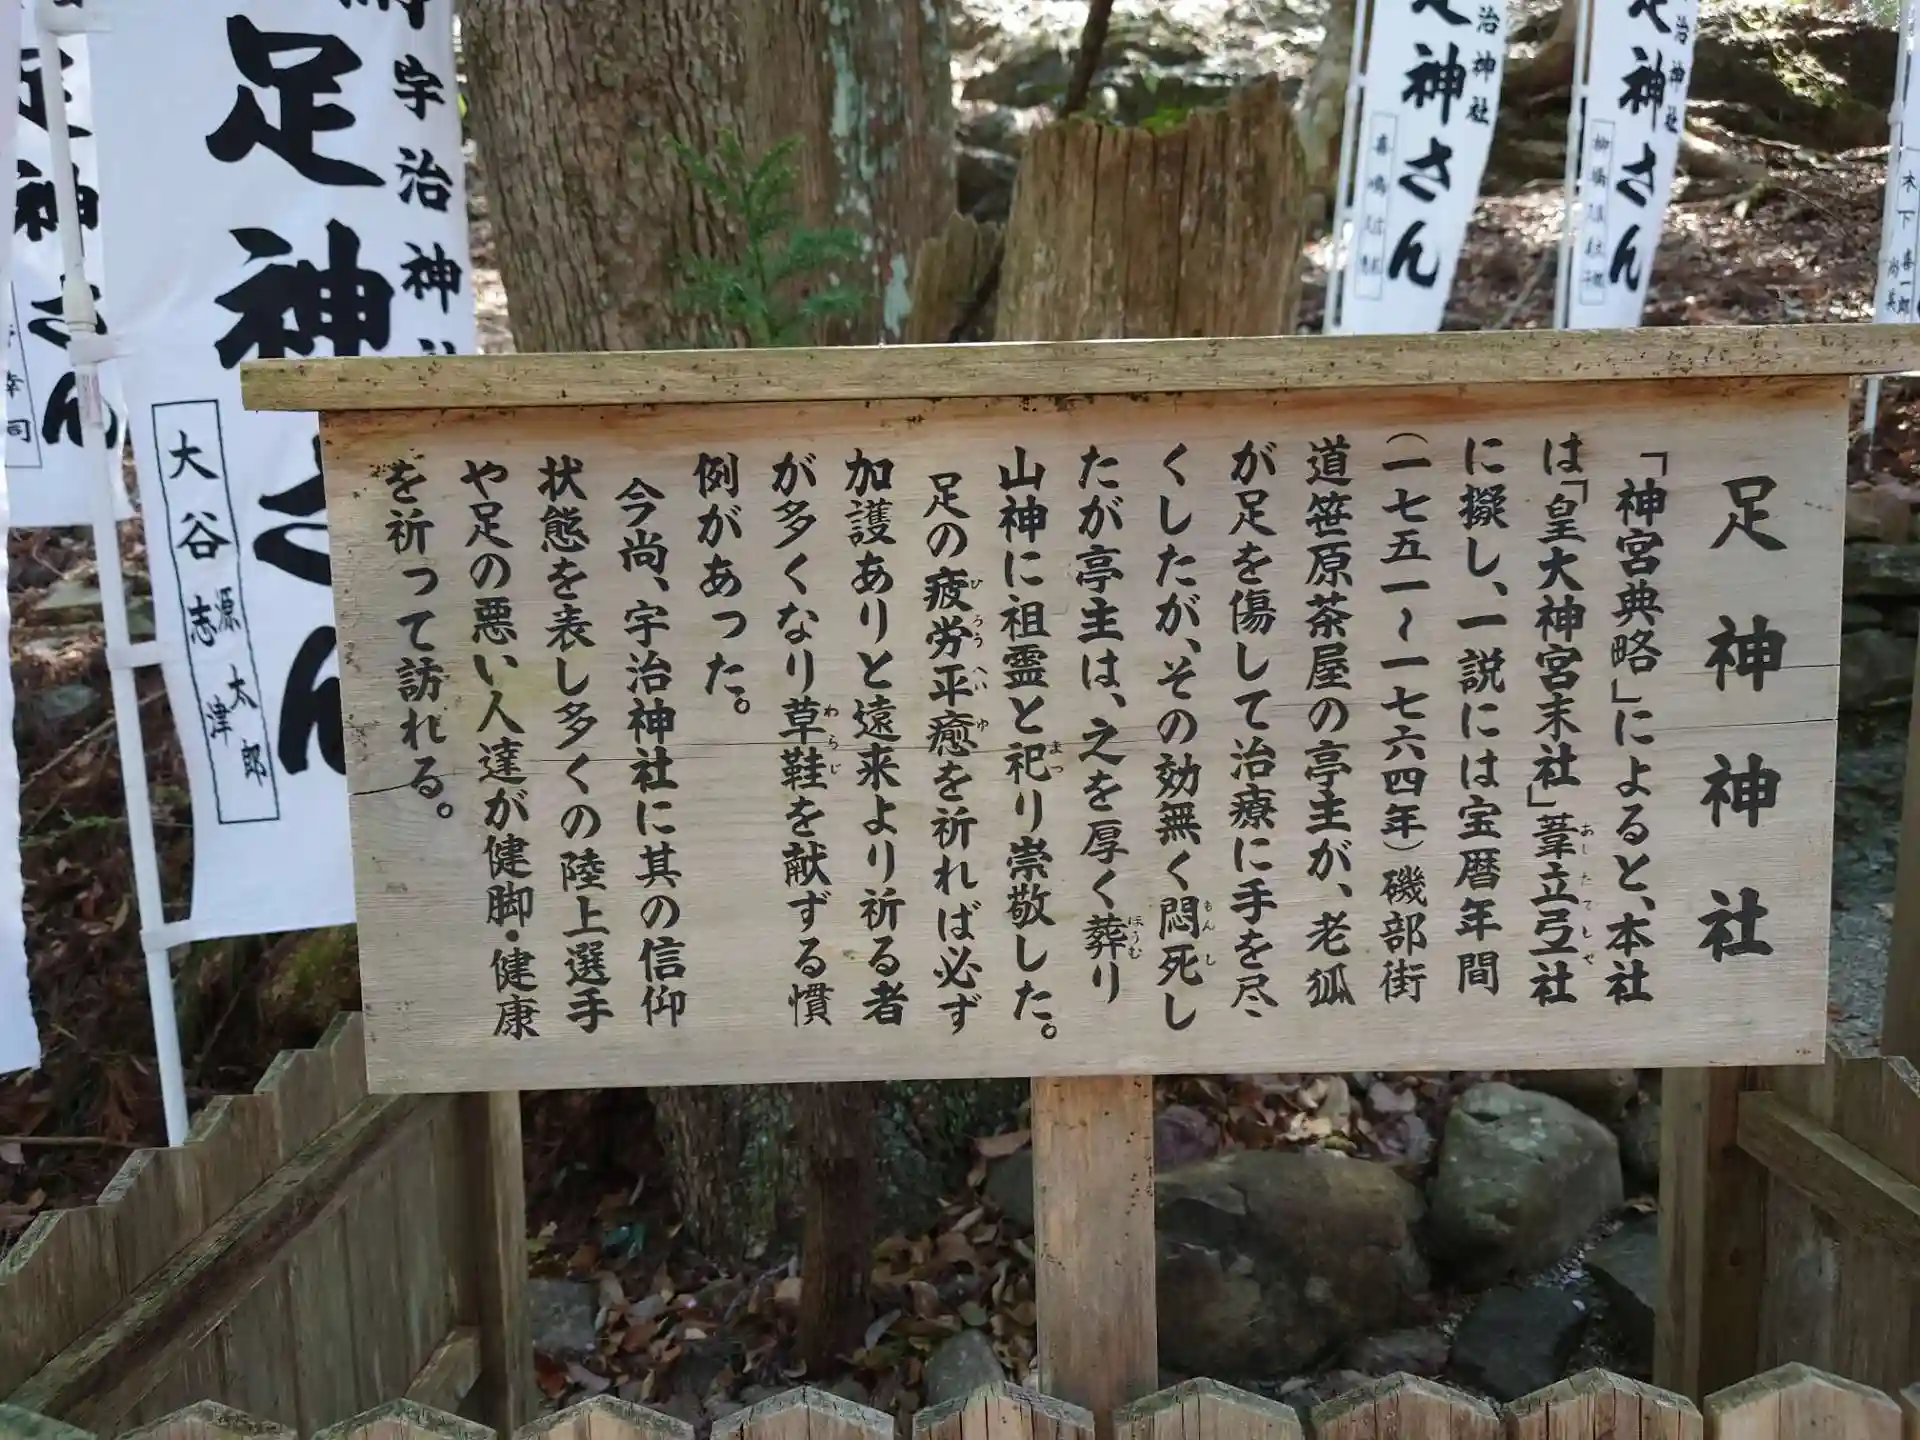 足神神社
「神宮典略」によると、本社
は「皇大神宮末社」葦立弖社
に擬し、一説には宝暦年間
(一七五一～一七六四年)磯部街
道笹原茶屋の亭主が、老狐
が足を傷して治療に手を尽
くしたが、その効無く悶死し
たが亭主は、之を厚く葬り
山神に祖霊と祀り崇敬した。
足の疲労平癒を祈れば必ず
加護ありと遠来より祈る者
が多くなり草鞋を献ずる慣
例があった。
今尚、宇治神社に其の信仰
状態を表し多くの陸上選手
や足の悪い人達が健脚・健康
を祈って訪れる。
あしたてしゃ
もんし
ほうむ
まつ
ひろうへいゆ
わらじ
宇治神社
足神さん
大谷 源太郎
志津
治神社
足神さん
治神社
足神さん
木下 喜一郎
尚美
神さん
幸司